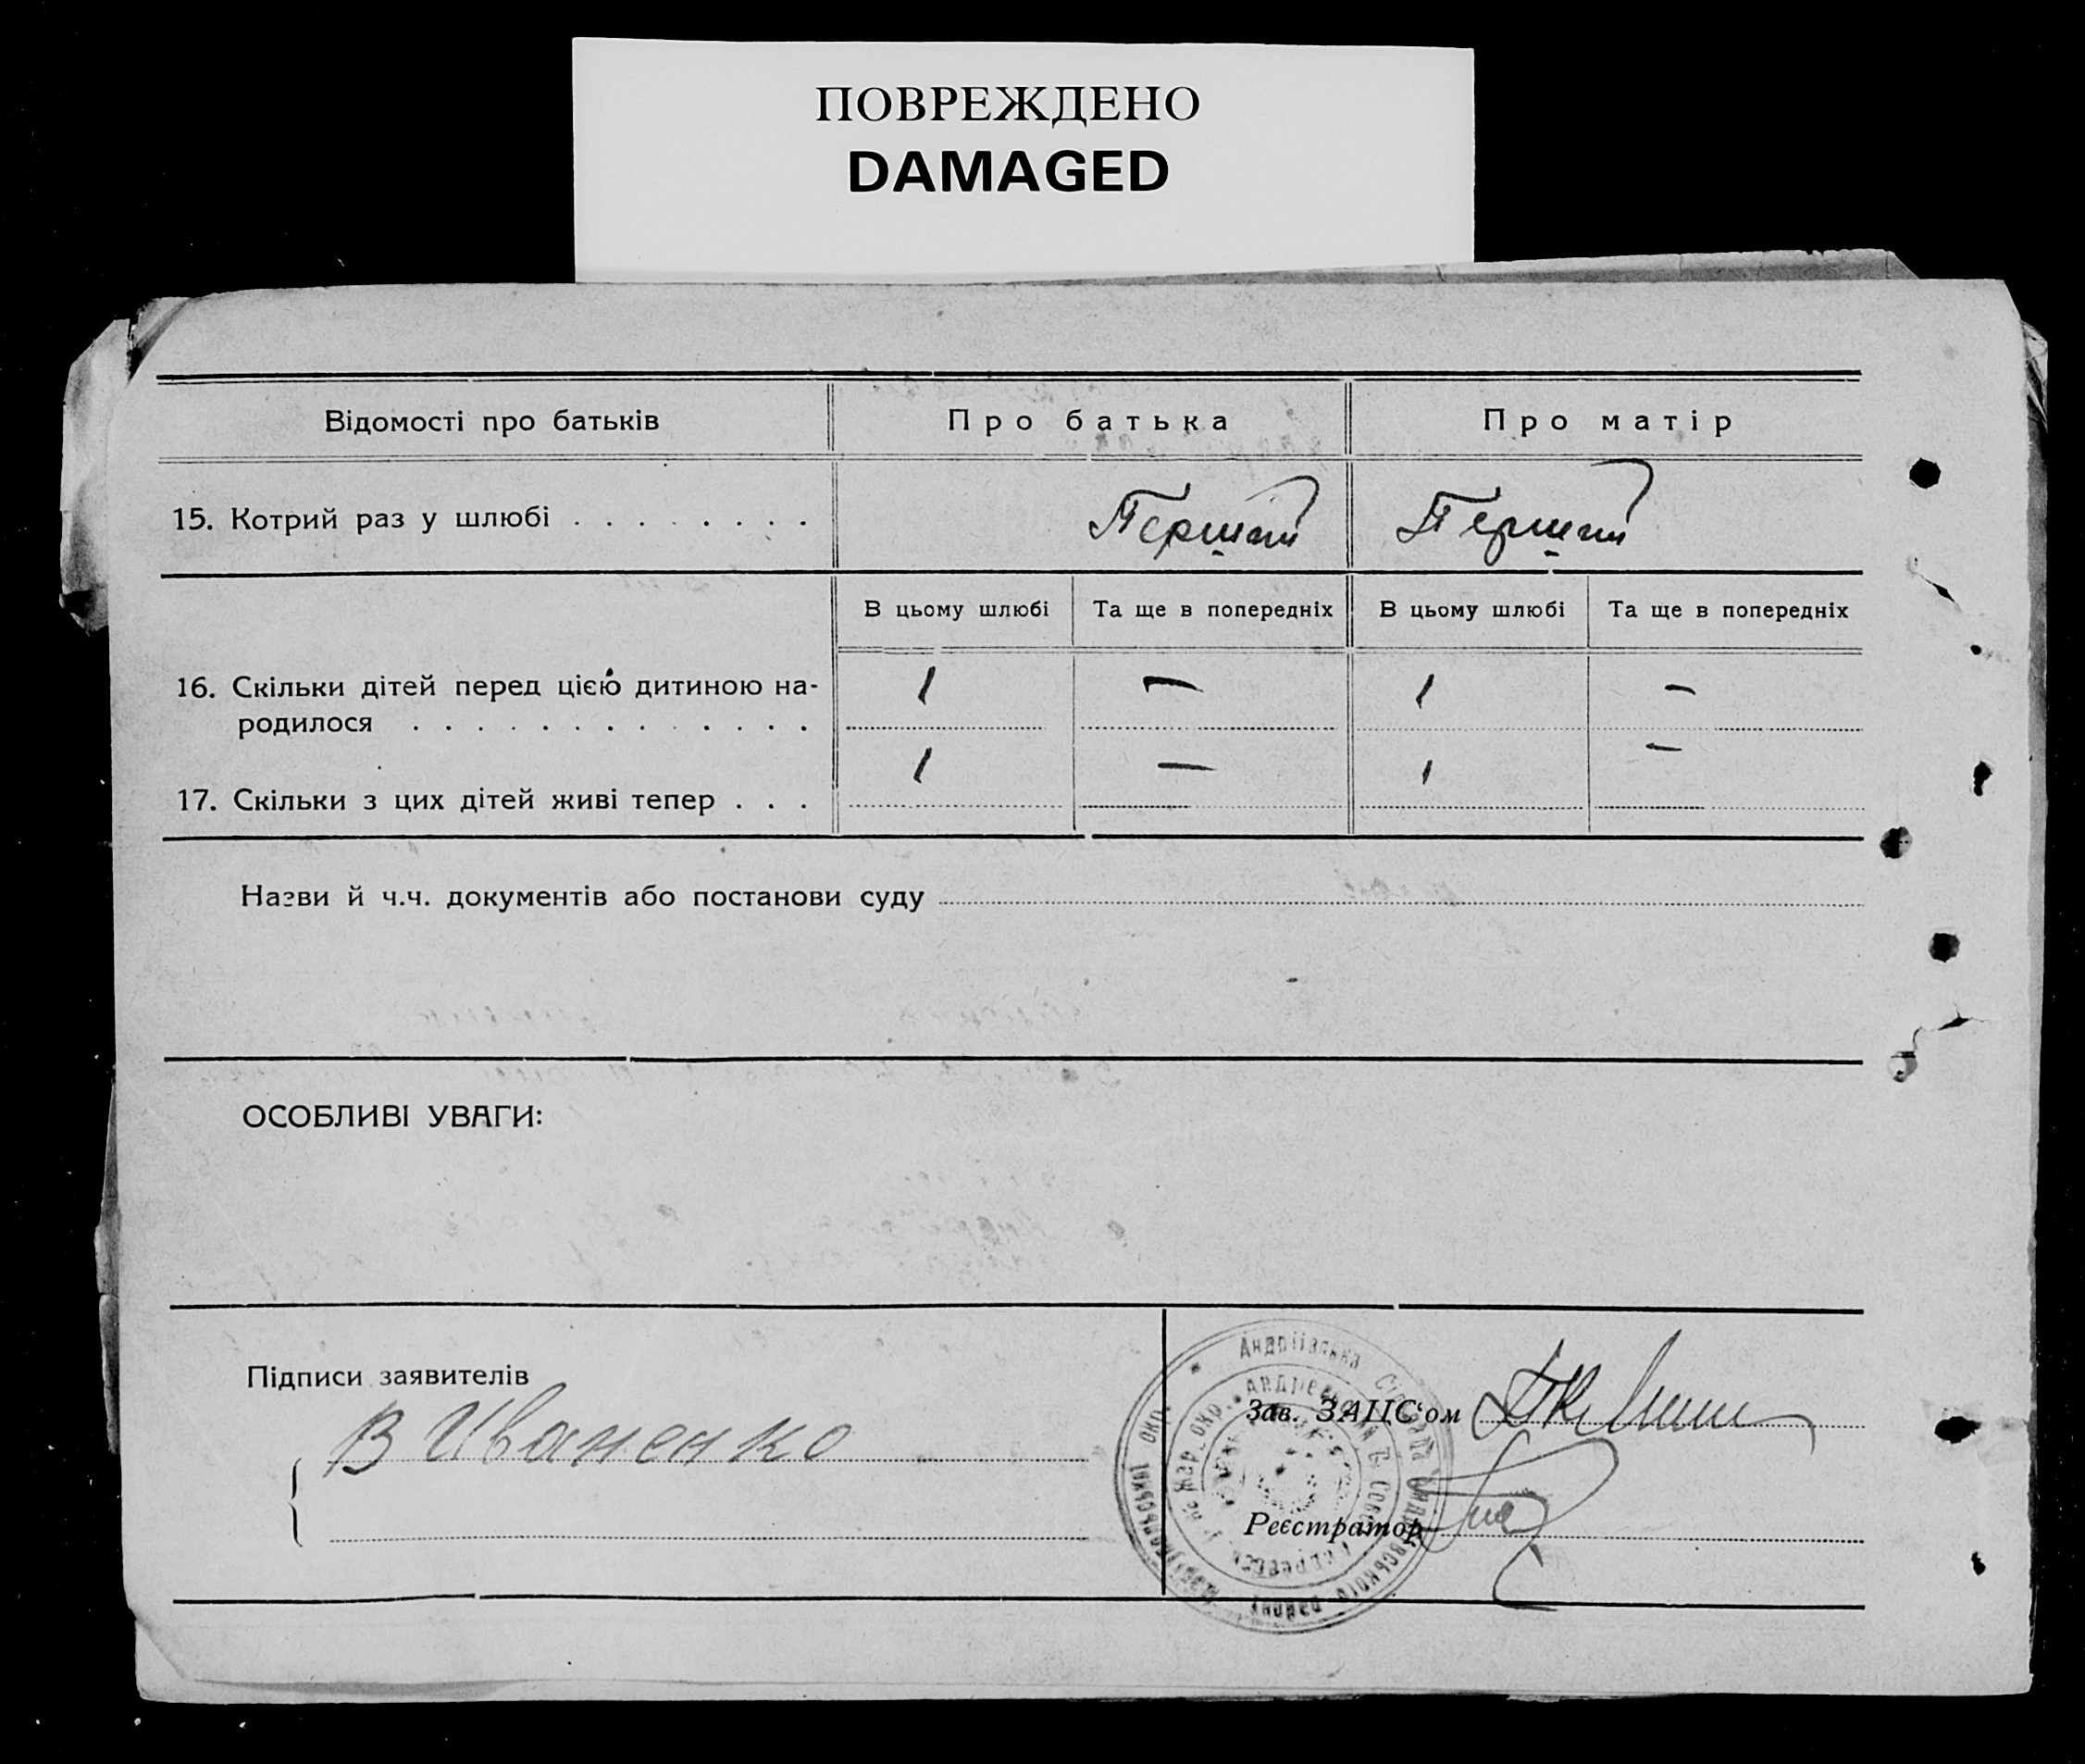 ПОВРЕЖДЕНО
DAMAGED
Відомості про батьків
Про батька
Про матір
15. Котрий раз у шлюбі . . . . . . . .
Перший
Перший
В цьому шлюбі
Та ще в попередніх
В цьому шлюбі
Та ще в попередніх
16. Скільки дітей перед цією дитиною на-
родилося . . . . . . . . . . . . .
1
—
1
—
17. Скільки з цих дітей живі тепер . . .
1
—
1
—
Назви й ч.ч. документів або постанови суду
ОСОБЛИВІ УВАГИ:
Підписи заявителів
В Иваненко
Зав. ЗАЦС'ом
Реєстратор